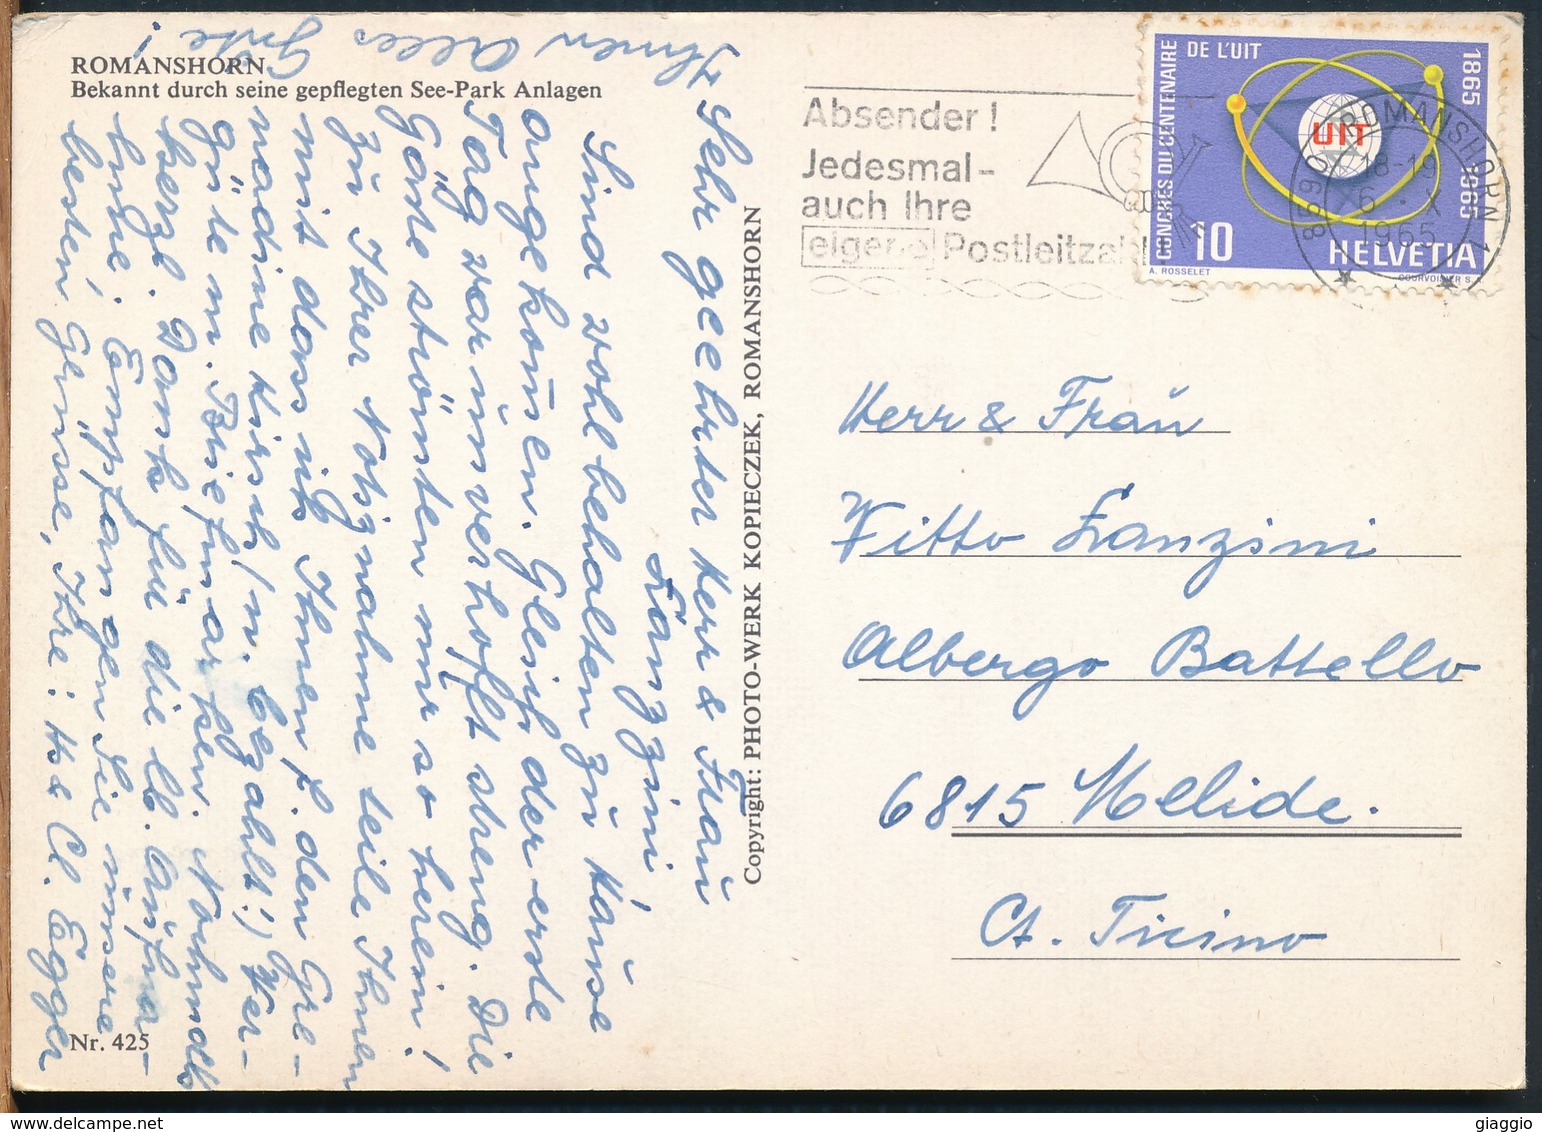 ROMANSHORN
Bekannt durch seine gepflegten See-Park Anlagen
Sehr geehrter Herr & Frau
Lanzini,
Sind wohlbehalten zu Hause
angekommen. Gleich der erste
Tag war unverhofft streng. Die
Gäste strömten nur so herein!
Zu Ihrer Notiznahme teile Ihnen
mit dass ich Ihnen f. den Gre-
nadine Kirsch / n. bezahlt!) Ver-
güte in Briefmarken. Nochmals
herzl. Dank für die lb. Aufna-
hme! Empfangen Sie unsere
besten Grüsse, Ihre: H & Cl. Egger
Ihnen Alles
Gute!
Nr. 425
Copyright: PHOTO-WERK KOPIECZEK, ROMANSHORN
Absender!
Jedesmal-
auch Ihre
eigene Postleitzahl
CONGRES DU CENTENAIRE
DE L'UIT
1865
1965
UIT
10
HELVETIA
A. ROSSELET
COURVOISIER S.
8590 ROMANSHORN 1
18-19
6.X
1965
Herr & Frau
Vitto Lanzini
Albergo Battello
6815 Melide.
Ct. Ticino
giaggio